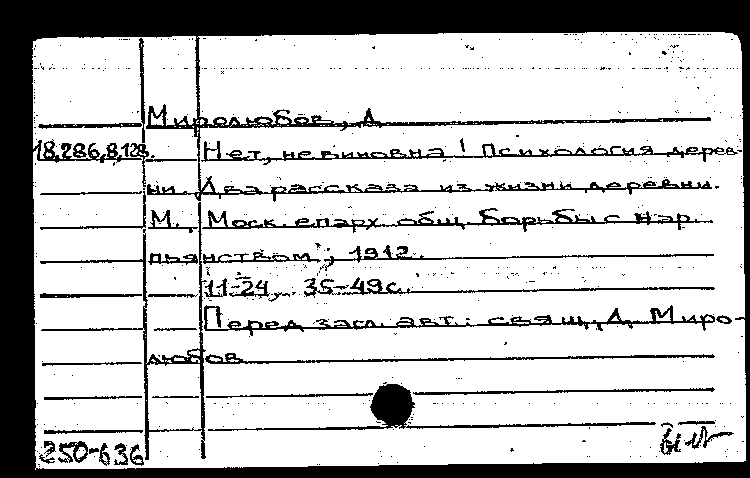 Миролюбов, А
18.286.8.128. Нет, не виновна! Психология дерев-
ни. Два рассказа из жизни деревни.
М., Моск. епарх общ борьбы с нар.
пьянством, 1912.
11-24, 35-49с.
Перед загл. авт.: свящ. А. Миро-
любов
250-636